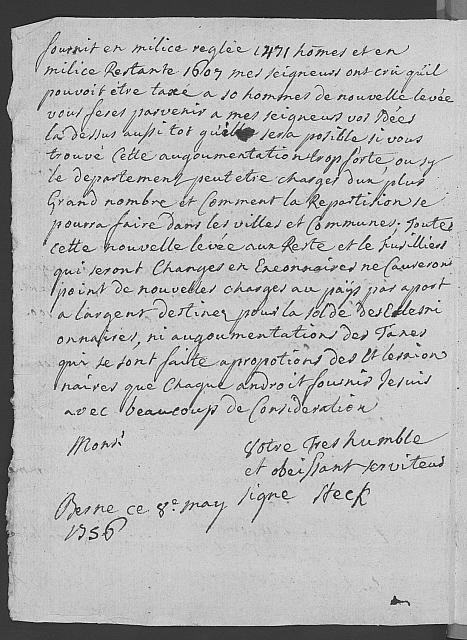 fournit en milice reglée 1471 hômes et en
milice Restante 1607 mes seigneurs ont crû qu'il
pouvoit étre taxé a 50 hommes de nouvelle levée
vous feres parvenir a mes seigneurs vos Idées
la dessus aussi tot quelle sera posible si vous
trouvé Cette augoumentation trop forte ou sy
le departement peut etre chargés d'un plus
Grand nombre et Comment la Repartition se
pourra faire dans les villes et Communes; Toute
cette nouvelle levée aux Reste et le fusilliers
qui seront Changes en Exeonnaires ne Causeron
point de nouvelles charges au païs par aport
a largent destinez pour la solde des
onnaires, ni augoumentations des Taxes
qui se sont faite a propotions des
naires que Chaque androit fournis Jesuis
avec beaucoup de Consideration
Monsr
Votre Tres humble
et obeissant serviteur
signe Steck
Berne ce 8e. may
1756